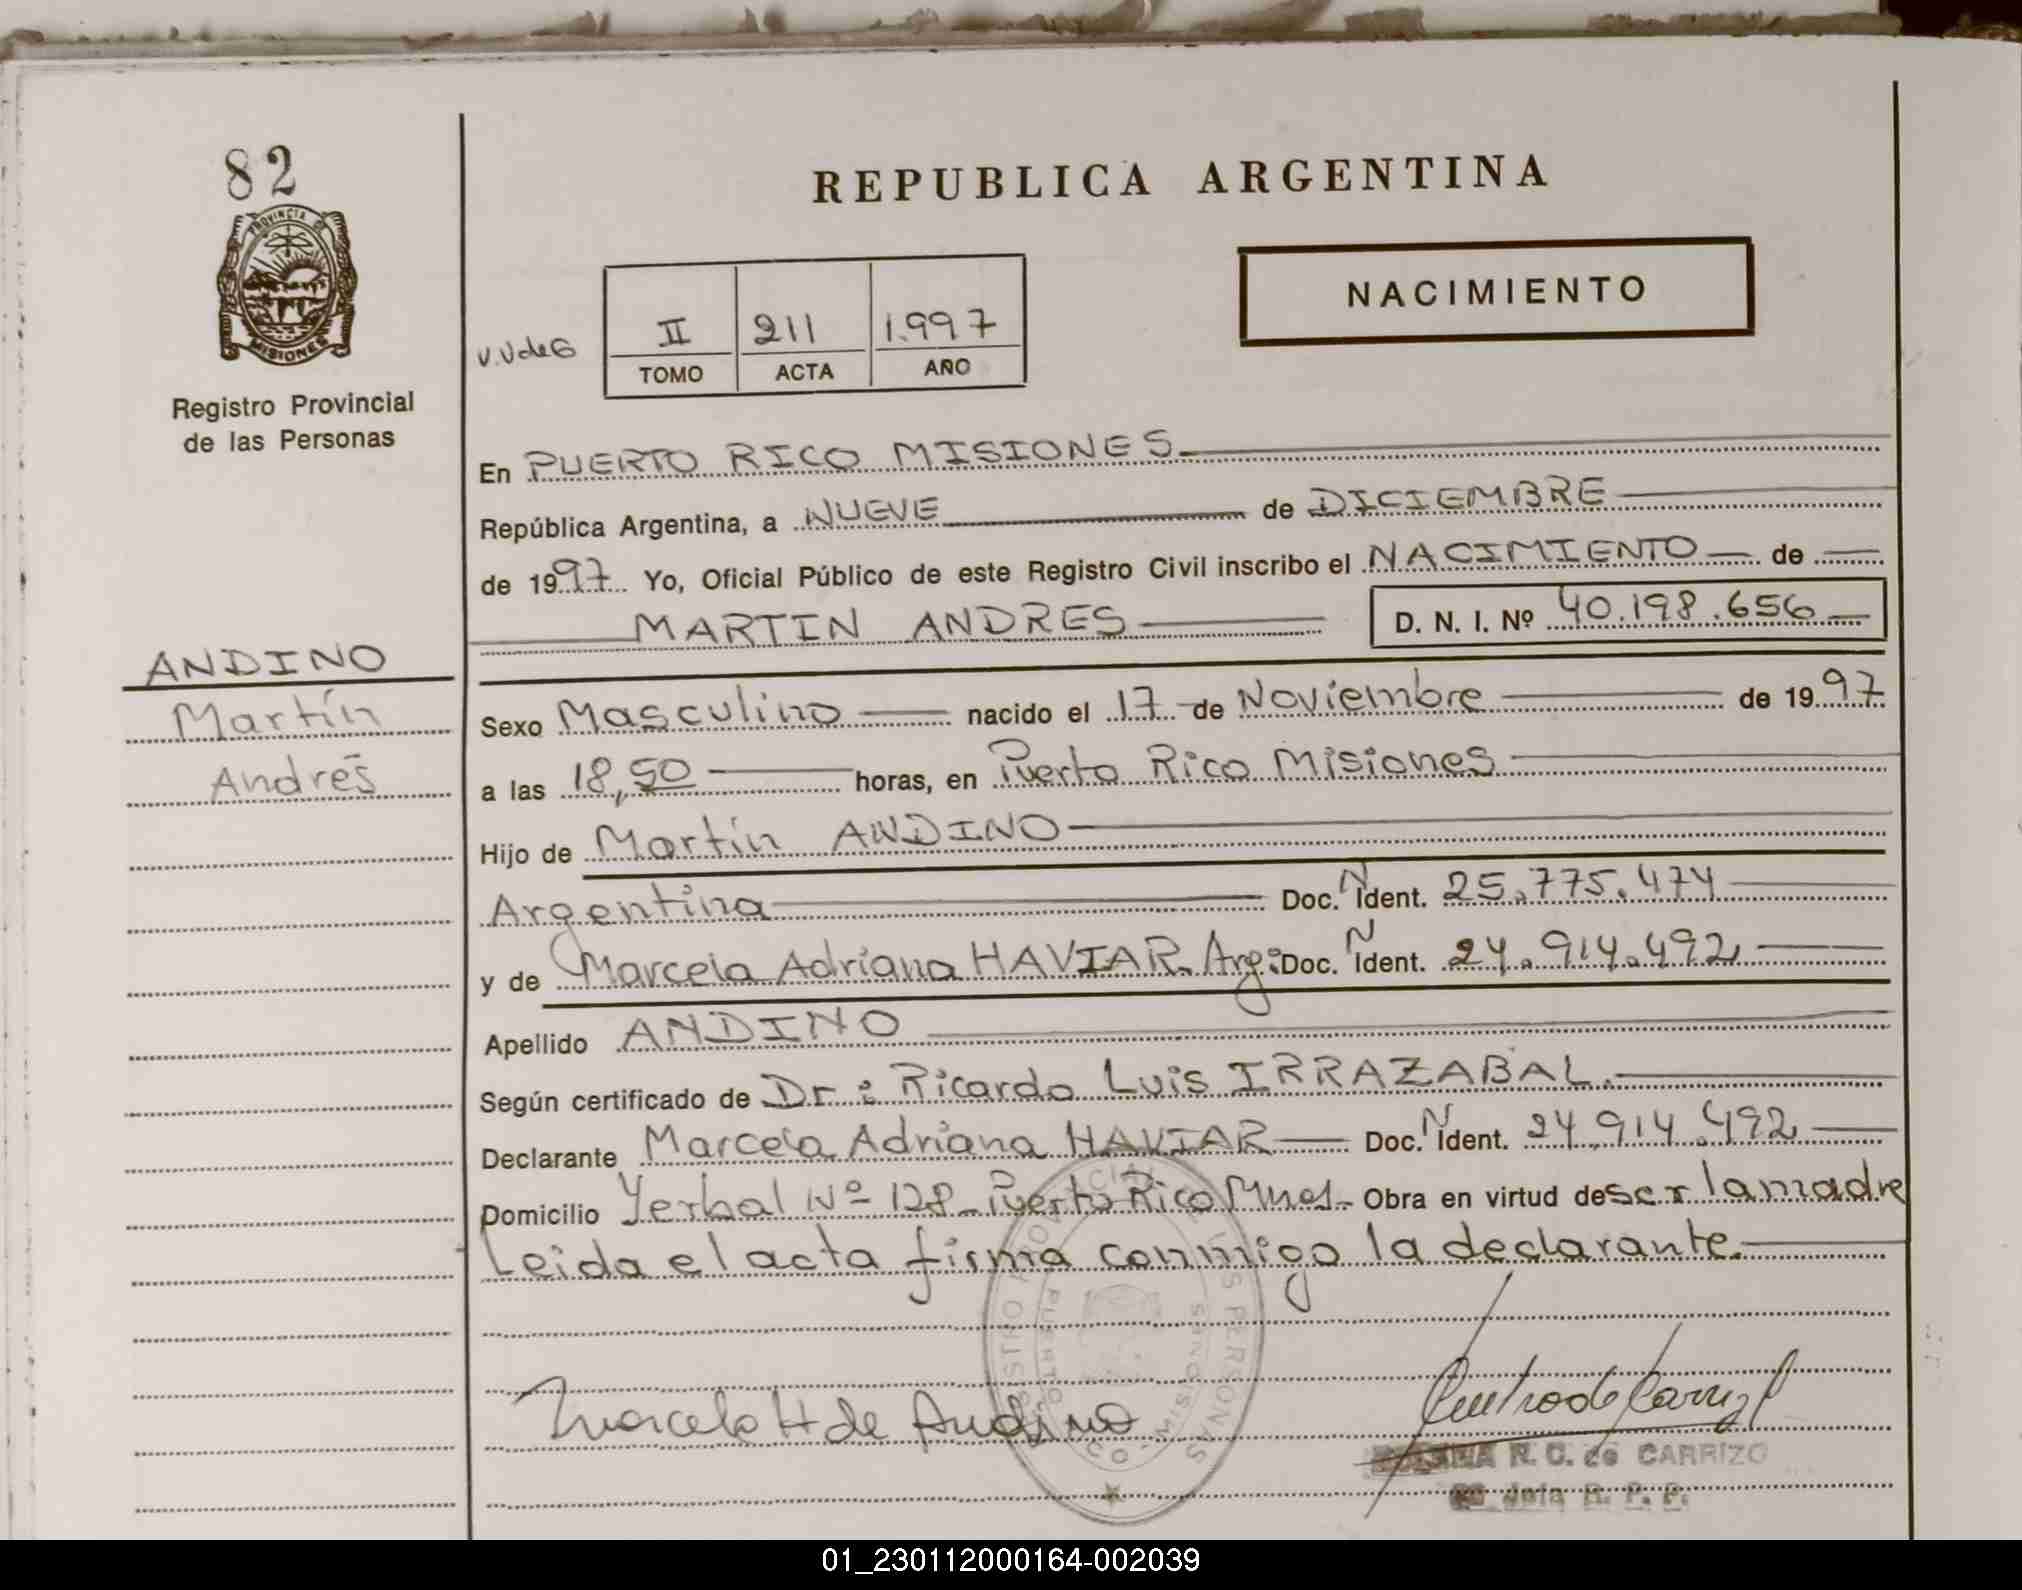 82
PROVINCIA DE
MISIONES
Registro Provincial
de las Personas
REPUBLICA ARGENTINA
NACIMIENTO
V.V de G
II 211 1.997
TOMO ACTA AÑO
En PUERTO RICO MISIONES
República Argentina, a NUEVE de DICIEMBRE
de 1997 Yo, Oficial Público de este Registro Civil inscribo el NACIMIENTO de
MARTIN ANDRES D. N. I. Nº 40.198.656
ANDINO
Martín
Andrés
Sexo Masculino nacido el 17 de Noviembre de 1997
a las 18,50 horas, en Puerto Rico Misiones
Hijo de Martín ANDINO
Argentina Doc. N Ident. 25.775.474
y de Marcela Adriana HAVIAR. Arg: Doc. N Ident. 24.914.492
Apellido ANDINO
Según certificado de Dr: Ricardo Luis IRRAZABAL.
Declarante Marcela Adriana HAVIAR Doc. N Ident. 24.914.492
Domicilio Yerbal Nº 128 - Puerto Rico Mnes. Obra en virtud de ser la madre
Leida el acta firma conmigo la declarante.
Marcela H de Andino
R. C. de CARRIZO
Jefa R. P. P.
REGISTRO PROVINCIAL DE LAS PERSONAS
PUERTO RICO - MISIONES
01_230112000164-002039